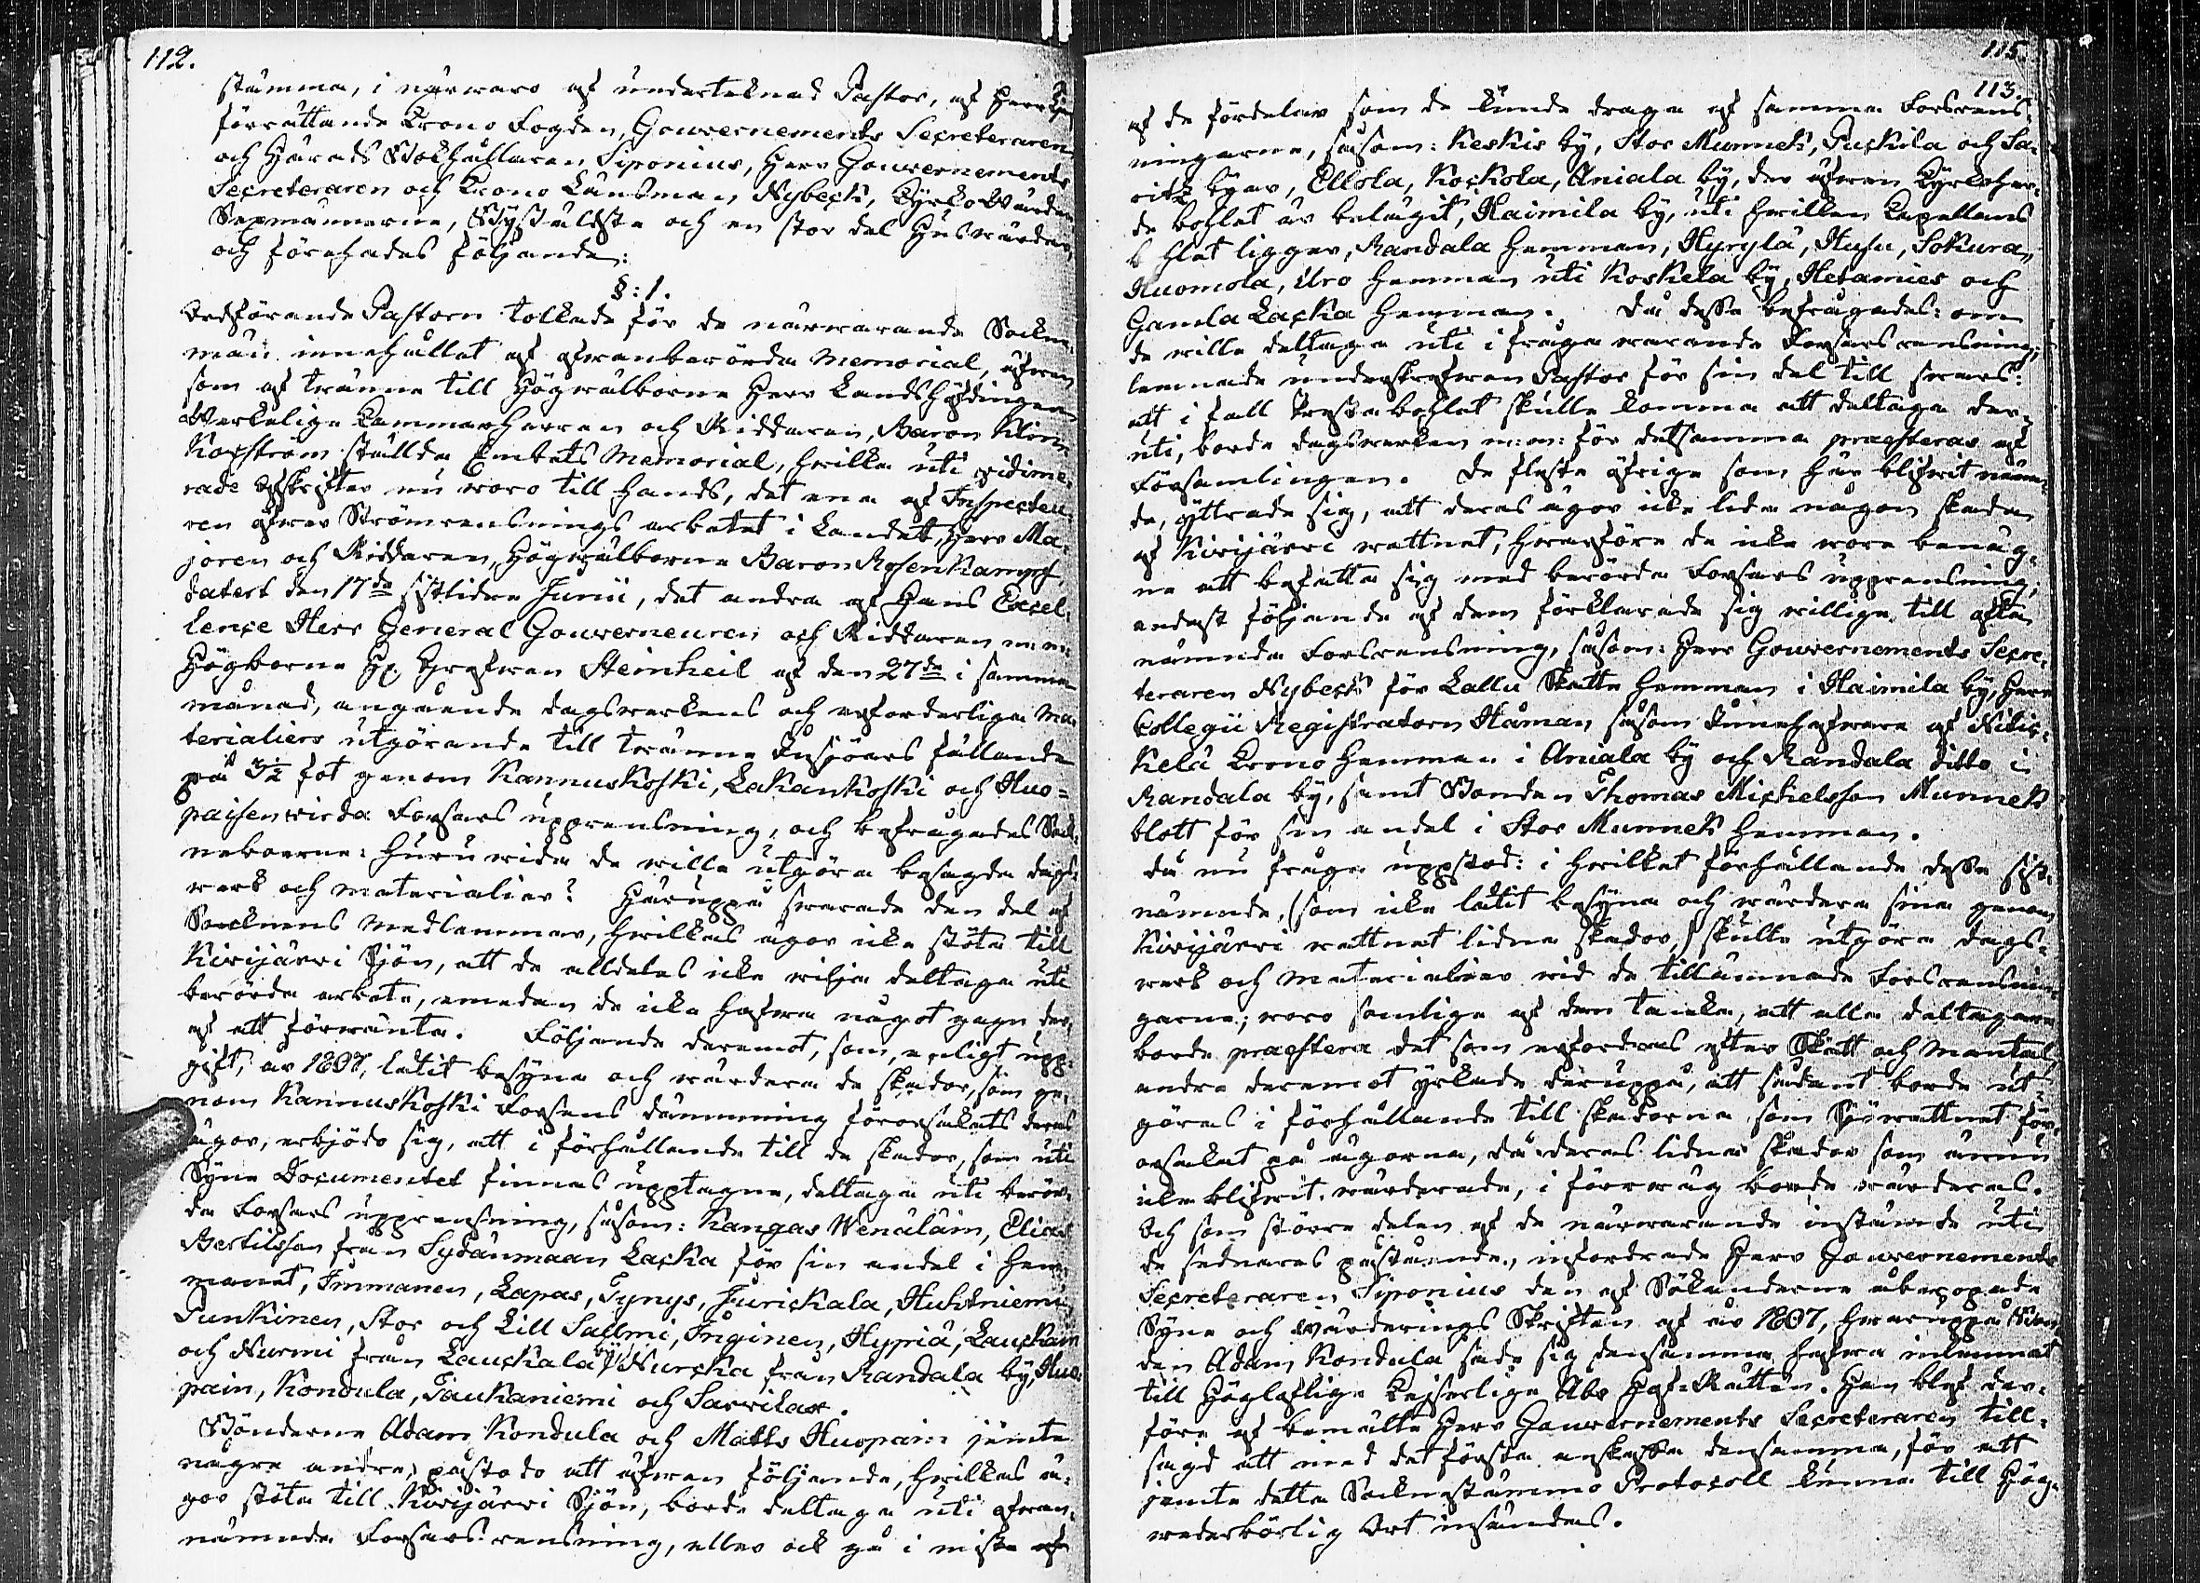 112.
stämma, i närwaro af undertecknad Pastor, af Herr
förrättande Krono Fogden, Gouvernements Secreteraren
och Härads Bokhållaren Siponius, Herr Gouvernements
Secreteraren och Krono Länsman Nybeck, Kyrko Wärden
Sexmännerne, By äldste och en stor del Huswärdar,
och förehades följande:
§: 1.
Ordförande Pastorn tolkade för de närwarande Sockne-
män innehållet af ofwanberörde Memorial, äfwen
som af twänne till Högwälborne Herr Landshöfdingen
Werkelige Kammarherren och Riddaren, Baron Klinc-
kofström ställda Embets Memorial, hwilka uti vidime-
rade afskrifter nu woro till hands, det ena af Inspecteu-
ren öfwer Strömrensnings arbetet i Landet, Herr Ma-
joren och Riddaren, Högwälborne Baron Rosenkampff,
datert den 17de sistlidne Junii, det andra af Hans Excel-
lence Herr General Gouverneuren och Riddaren m: m:
Högborne Hr. Grefwen Steinheil af den 27de i samma
månad, angående dagswerkens och erforderliga Ma-
terialiers utgörande till twänne Insjöars fällande
på 3½ fot genom Kannuskoski, Lakankoski och Huo-
paisenwirda Forsars upprensning, och befrågades Sock-
neboerne: huruwida de wille utgöra besagde dags-
werk och materialier? Häruppå swarade den del af
Socknens medlemmar, hwilkas ägor icke stöta till
Kivijärvi Sjön, att de alldeles icke wilja deltaga uti
berörde arbete, emedan de icke hafwa något gagn der-
af att förwänta. Följande deremot, som, enligt upp-
gift, år 1807, låtit besyna och wärdera de skador, som ge-
nom Kannuskoski Forsens dämmning förorsakats deras
ägor, erbjödo sig, att i förhållande till de skador, som uti
Syne Documentet finnas upptagne, deltaga uti berör-
de Forsars upprensning, såsom: Kangas Wenäläin, Elias
Bertilsson från Sydänmaan Lacka för sin andel i hem-
manet, Immanen, Lapas, Tynys, Jurickala, Huhtniemi
Punkinen, Stor och Lill Sallmi, Inginen, Hyriä, Lauckain
och Nurmi från Lauckala by, Nurcka från Randala by, Huo-
pain, Kondula, Taukaniemi och Sarvilax.
Bönderne Adam Kondula och Matts Huopain jemte
någre andre, påstodo att äfwen följande, hwilkas ä-
gor stöta till Kivijärvi Sjön, borde deltaga uti ofwan-
nämnde Forsars rensning, eller ock gå i miste af
115.
113.
af de fördelar som de kunde draga af samma Forsrens-
ningarne, såsom: Keskis by, Stor Munnek, Puckila och Sa-
vitz byar, Ellola, Kockola, Aniala by, der äfwen Kyrkoher-
de bohlet är belägit, Haimila by, uti hwilken Capellans
bohlet ligger, Randala hemman, Hyrylä, Husu, Sokura,
Huomola, Uro hemman uti Koskela by, Hetamies och
Gamla Lacka hemman. Då desse befrågades: om
de wille deltaga uti i fråga warande Forsars rensning,
lemnade underskrefwen Pastor för sin del till swars:
att i fall Prestabohlet skulle komma att deltaga der-
uti, borde dagswerken m: m: för detsamma præsteras af
Församlingen. De fleste öfrige som här blifwit nämn-
de, yttrade sig, att deras ägor icke lida någon skada
af Kivijärvi wattnet, hwarföre de icke wore benäg-
ne att befatta sig med berörde Forsars upprensning;
endast följande af dem förklarade sig willige till ofta-
nämnde Forsrensning, såsom: Herr Gouvernements Secre-
teraren Nybeck för Lallu Skatte hemman i Haimila by, Herr
Collegii Registratorn Håman, såsom Innehafware af Nitis-
kelä Krono hemman i Aniala by och Randala ditto i
Randala by, samt Bonden Thomas Mickelsson Munnek
blott för sin andel i Stor Munnek hemman.
Då nu fråga uppstod: i hwilket förhållande desse sist-
nämnde, (som icke låtit besyna och wärdera sine genom
Kivijärvi wattnet lidne skador,) skulle utgöra dags-
werk och materialier wid de tillämnade Forsrensnin-
garne; woro somlige af den tanke, att alla deltagare
borde præstera det som erfordras efter Skatt och Mantal,
andre deremot yrkade deruppå, att sådant borde ut-
göras i förhållande till skadorne som Sjöwattnet för-
orsakat på ägorna, då deras lidne skador som ännu
icke blifwit wärderade, i förewäg borde wärderas.
Och som större delen af de närwarande instämde uti
de sednares påstående, infordrade Herr Gouvernements
Secreteraren Siponius den af Sökanderne åberopade
Syne och Wärderings Skriften af år 1807, hwaruppå Bon-
den Adam Kondula sade sig densamma hafwa inlemnat
till Höglofliga Kejserliga Åbo Hof-Rätten. Han blef der-
före af bemälte Herr Gouvernements Secreteraren till-
sagd att med det första anskaffa densamma, för att
jemte detta Sockenstämmo Protocoll kunna till Hög-
wederbörlig Ort insändas.